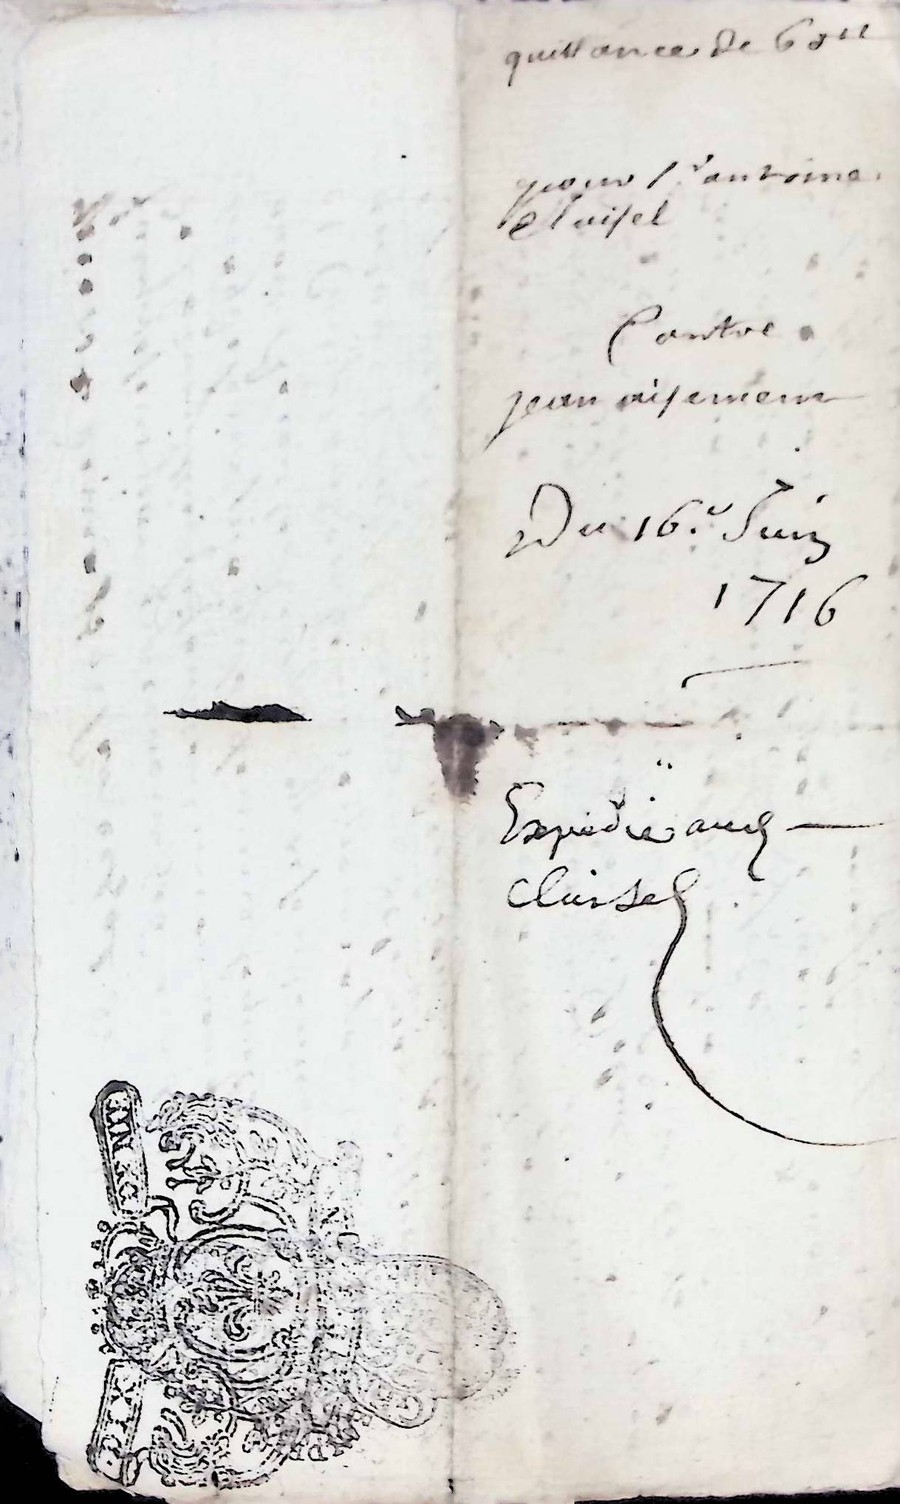 quittance de 60 ll
pour sr antoine
Cluisel
Contre
jean aisemem
Du 16e Juin
1716
Expédiée aud
Cluisel
DIX